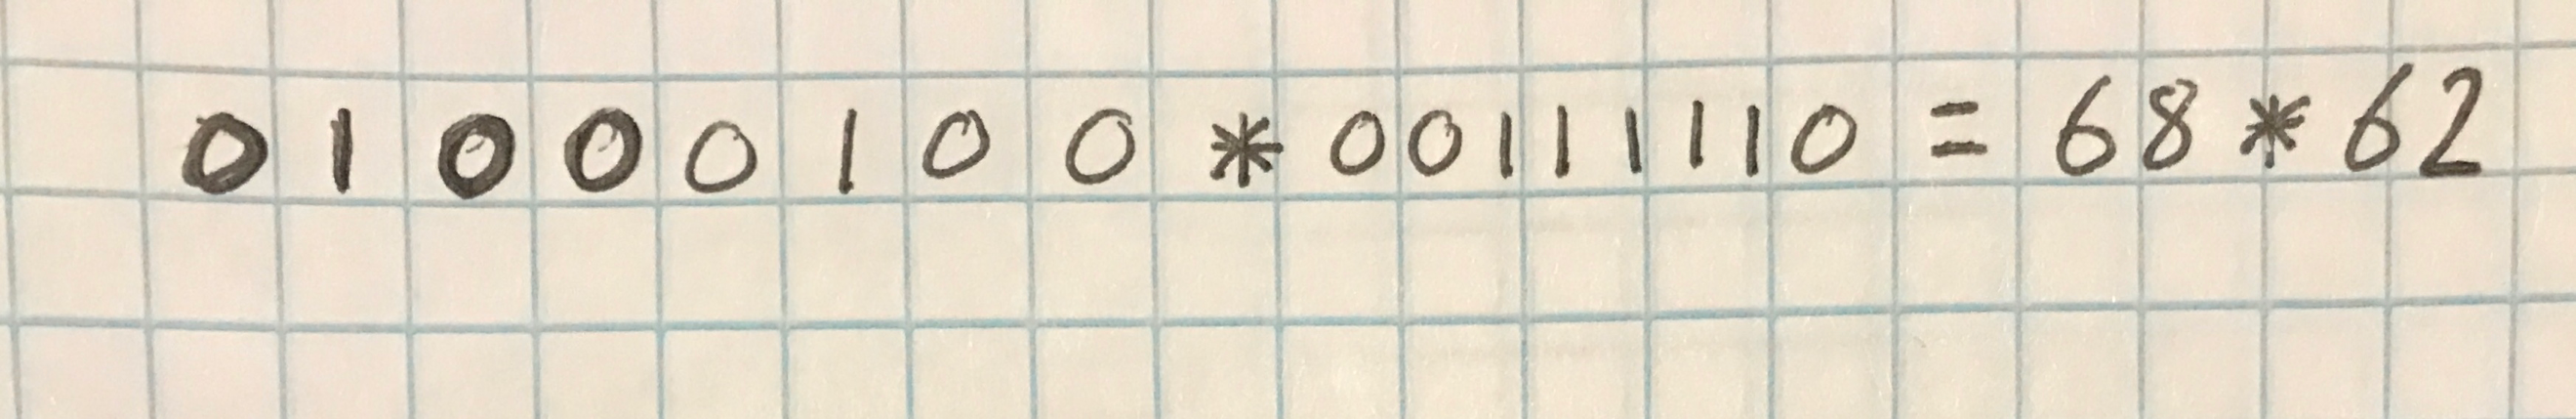 01000100 * 00111110 = 68 * 62